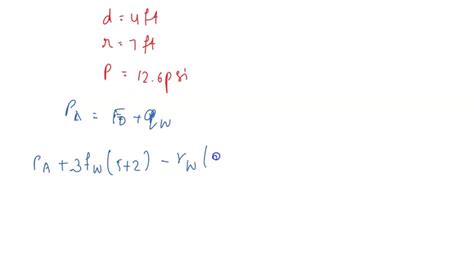 d = 4 ft
r = 7 ft
P = 12.6 psi
P_A = F_D + q_w
P_A + 3 f_w (5+2) - r_w (